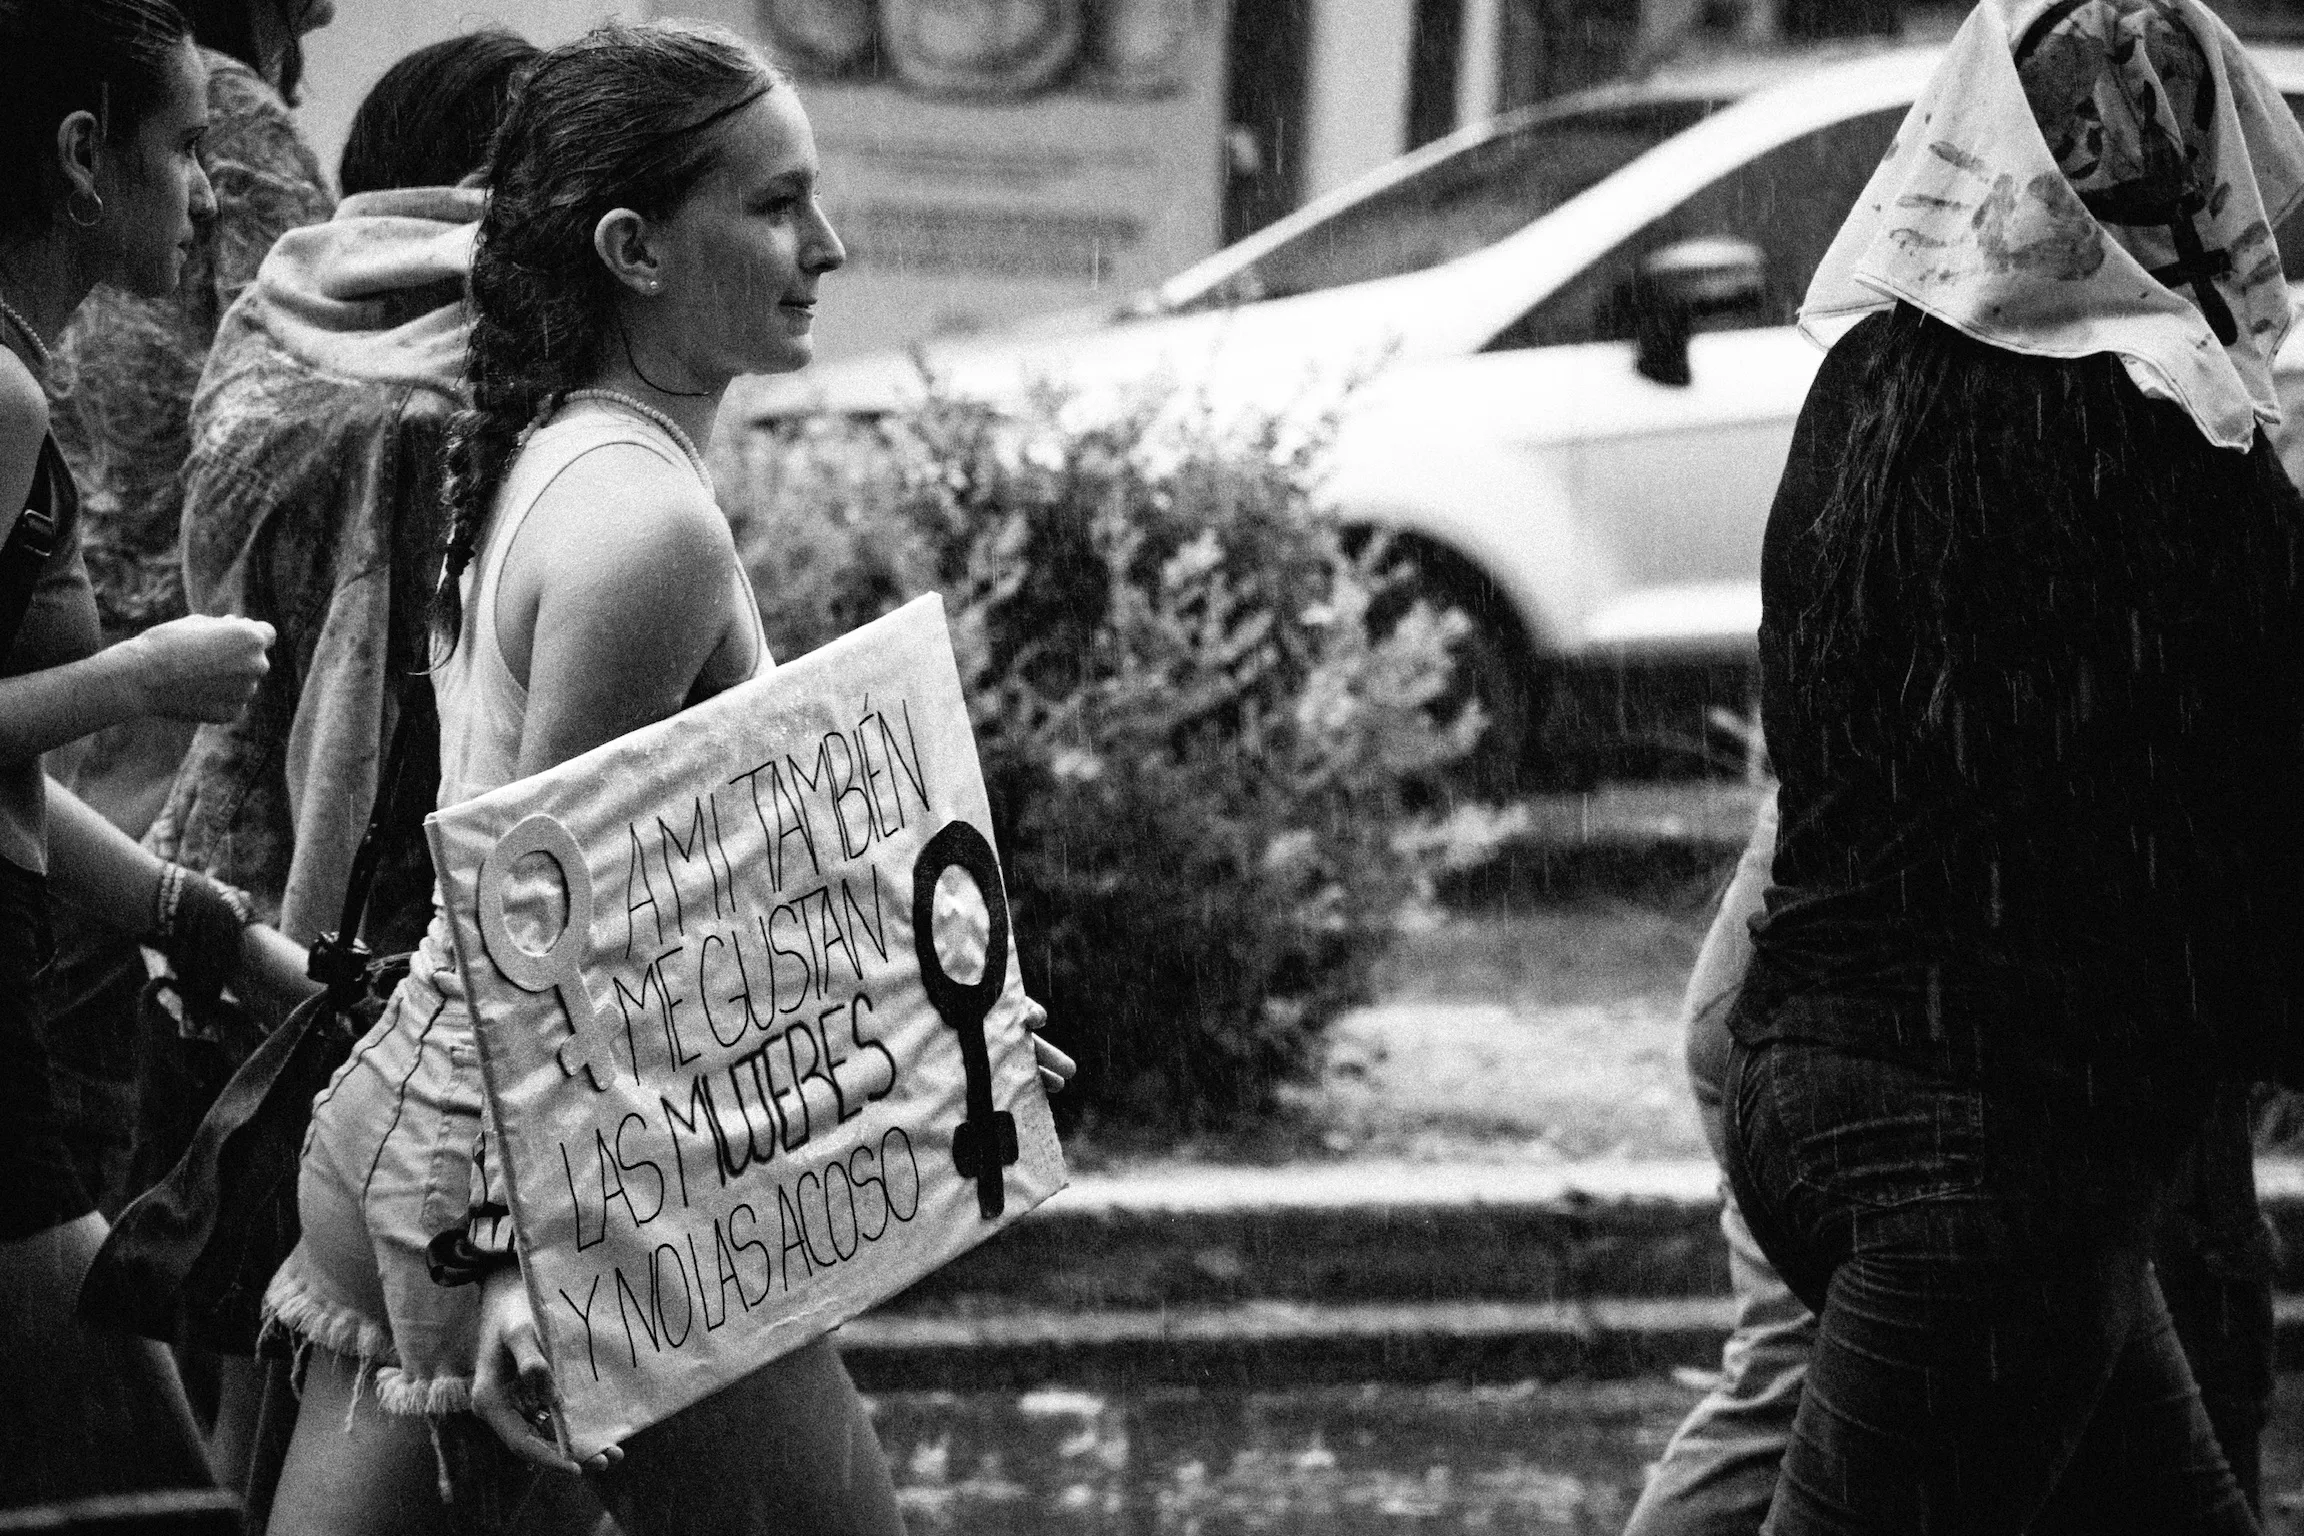 A MI TAMBIÉN
ME GUSTAN
LAS MUJERES
Y NO LAS ACOSO